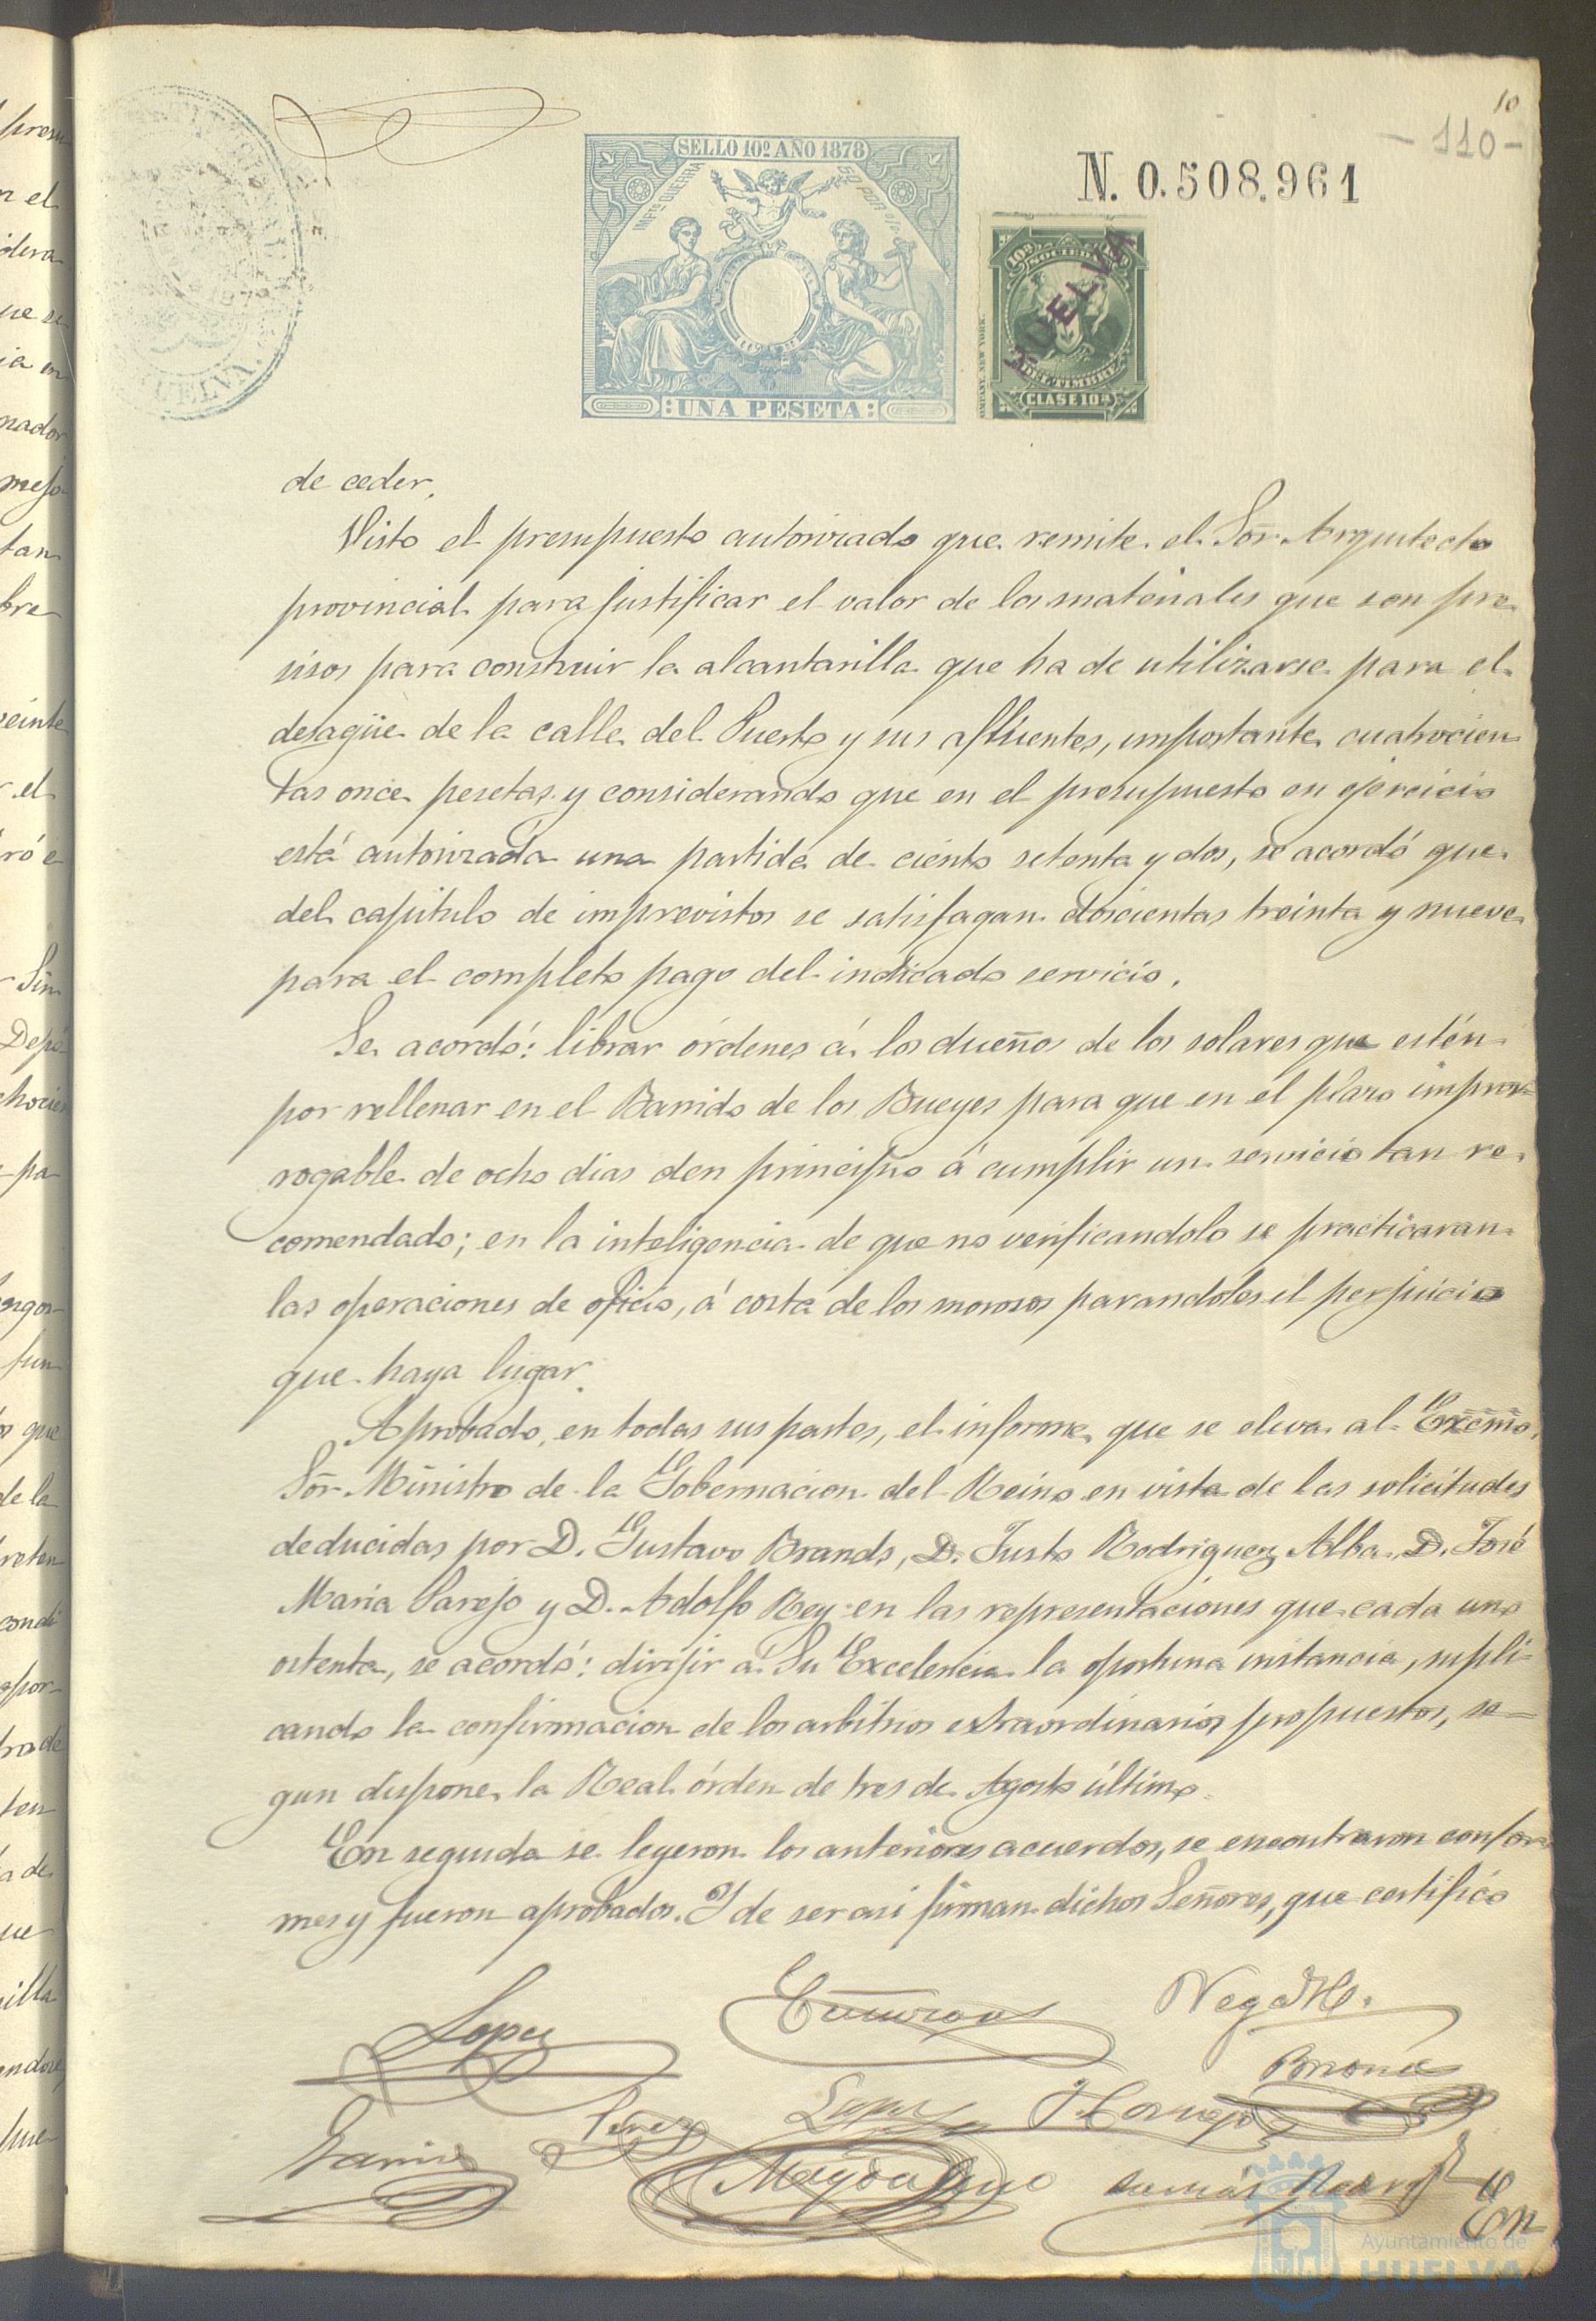 10
- 110 -
SELLO 10º AÑO 1878
IMPTO GUERRA
50 POR %
N. 0.508.961
HUELVA
10ª
SOCIEDAD
DEL TIMBRE
CLASE 10ª
UNA PESETA
HUELVA.
de ceder.
Visto el presupuesto autorizado que remite el Sor. Arquitecto
provincial para justificar el valor de los materiales que son pre-
sisos para construir la alcantarilla que ha de utilizarse para el
desagüe de la calle del Puerto y sus afluentes, importante cuatrocien
tas once pesetas y considerando que en el presupuesto en ejercicio
está autorizada una partida de ciento setenta y dos, se acordó que
del capitulo de imprevistos se satisfagan doscientas treinta y nueve
para el completo pago del indicado servicio.
Se acordó: librar órdenes á los dueños de los solares que estén
por rellenar en el Barrido de los Bueyes para que en el plazo impror-
rogable de ocho dias den principio á cumplir un servicio tan re-
comendado; en la inteligencia de que no verificandolo se practicaran
las operaciones de oficio, á costa de los morosos parandoles el perjuicio
que haya lugar.
Aprobado, en todas sus partes, el informe que se eleva al Excmo.
Sor. Ministro de la Gobernacion del Reino en vista de las solicitudes
deducidas por D. Gustavo Brands, D. Justo Rodriguez Alba, D. José
Maria Parejo y D. Adolfo Rey en las representaciones que cada uno
ostenta, se acordó: dirijir á Su Excelencia la oportuna instancia, supli-
cando la confirmacion de los arbitrios extraordinarios propuestos, se-
gun dispone la Real órden de tres de Agosto último.
En seguida se leyeron los anteriores acuerdos, se encontraron confor
mes y fueron aprobados. Y de ser asi firman dichos Señores, que certifico
Lopez
Garcia Perez Lopez
Magdaleno
En
Ayuntamiento de
HUELVA